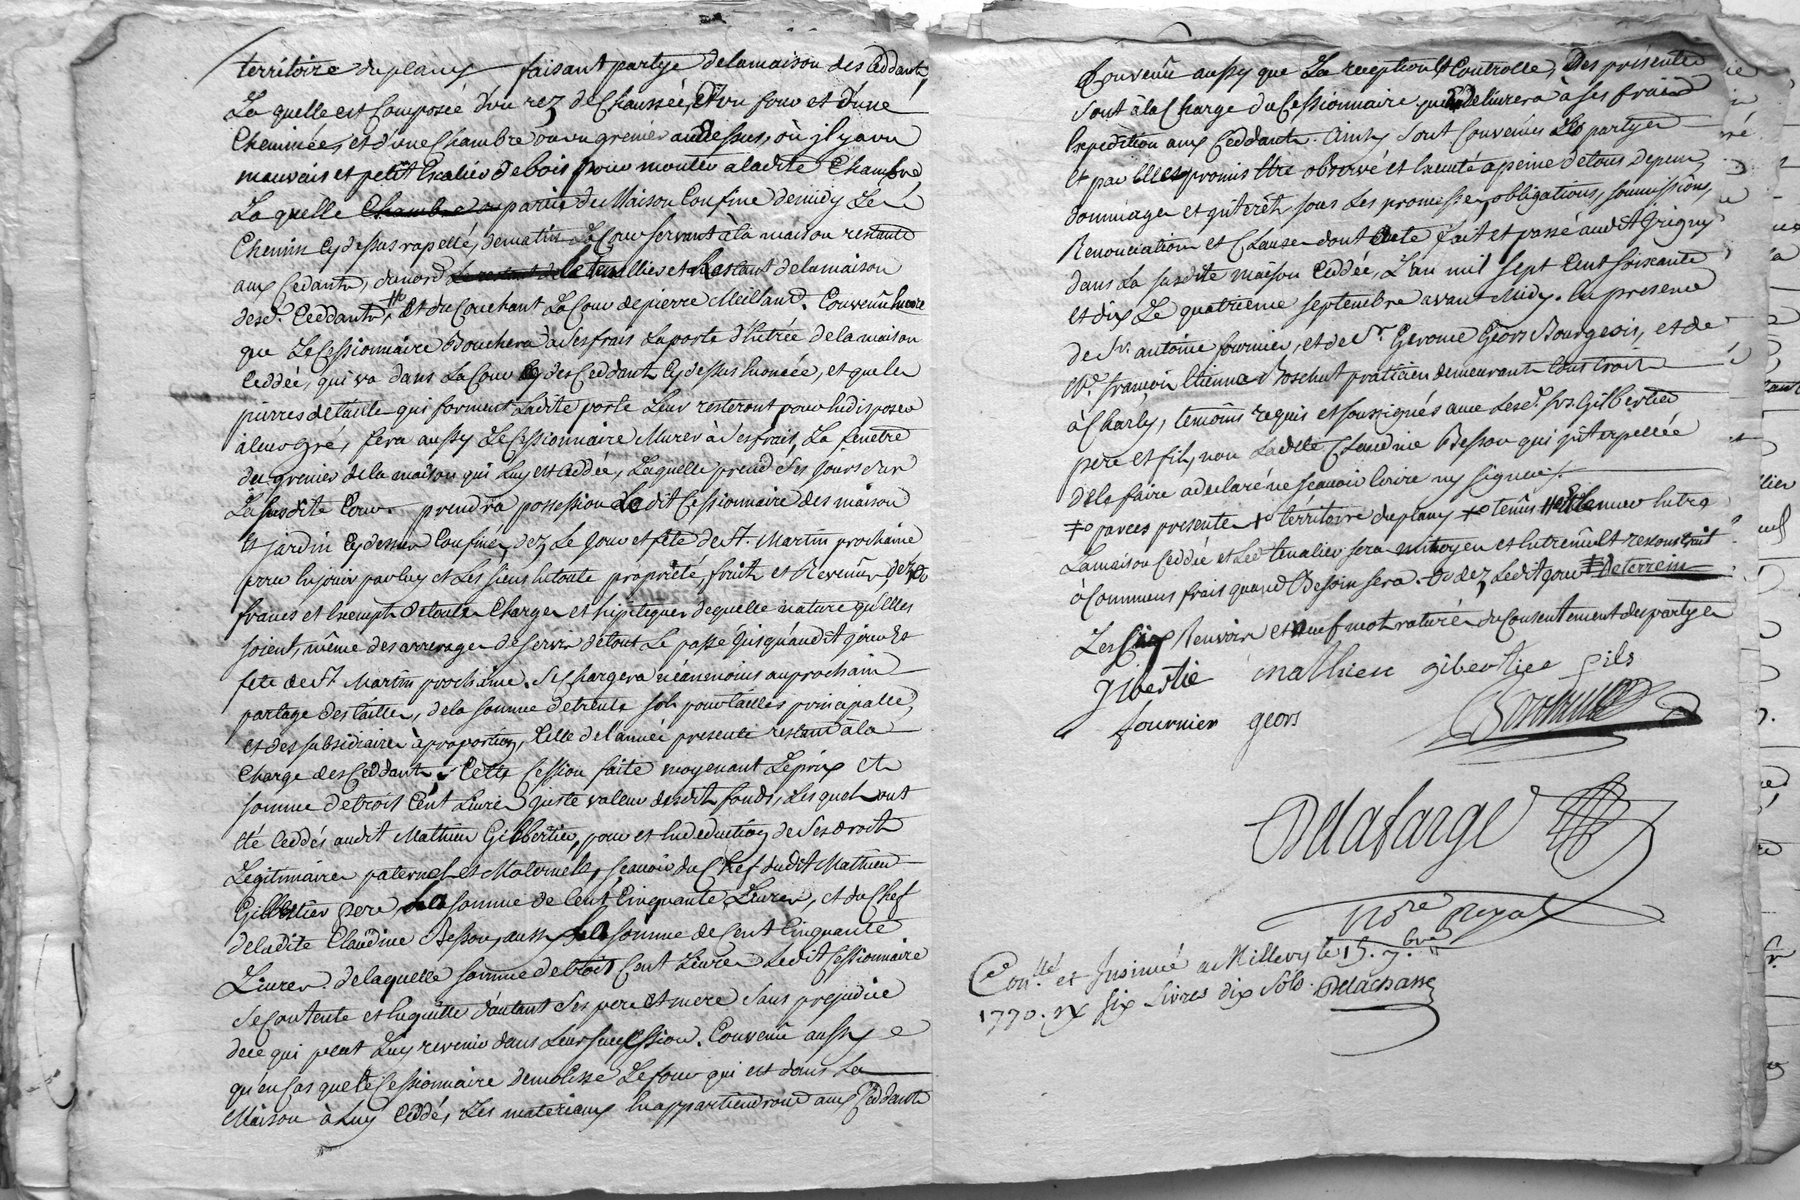 territoire du plany faisant partye de la maison des Ceddants,
La quelle est Composée d'un rez de Chaussée, et d'un four et d'une
Cheminée, et d'une Chambre ou un grenier au dessus, où jl y a un
mauvais et petit Escalier de bois pour monter a ladite Chambre
La quelle Chambre ou partie de Maison Confine de midy Le
Chemin Cy dessus rapellé, de matin La Cour servant à la maison restante
aux Cedants, du nord Le restant de Le tenallier et Restant de la maison
desd. Ceddants, Et du Couchant La Cour de pierre Meilland. Convenû Encore
que Le Cessionnaire Bouchera à Ses frais La porte d'Entrée de la maison
Ceddée, qui va dans La Cour des Ceddants Cy dessus Enoncée, et que les
pierres de taille qui forment Ladite porte Leur resteront pour En disposer
à leur Gré, fera aussy Le Cessionnaire Murer à Ses frais, La fenetre
du grenier de la maison qui Luy est Ceddée, Laquelle prend Ses Jours Sur
La susdite Cour. prendra possession Le dit Cessionnaire des maison
Et jardin Cy dessus Confinés, dez Le Jour et fête de St. Martin prochaine
pour En jouir par luy et Les Siens En toute propriété, fruits et Revenûs dez
francs et Exempts de toutes Charges et hipoteques de quelle nature qu'Elles
soient, même des arrerages de Servis de tout Le passé jusqu'audit jour Et
fête de St Martin prochaine. Se Chargera néanmoins au prochain
partage des tailles, de la somme de trente sols pour tailles principalle,
et des subsidiaires à proportion, Celle de l'année presente restant à la
Charge des Ceddants. Cette Cession faite moyenant Le prix et
somme de trois Cent Livres juste valeur desdits fonds, Lesquels ont
Eté Ceddés audit Mathieu Gilbertier, pour et En deduction de Ses droits
Légitimaires paternels et Maternels, sçavoir du Chef dudit Mathieu
Gilbertier Pere, La somme de Cent Cinquante Livres, et du Chef
de ladite Claudine Besson, aussy La somme de Cent Cinquante
Livres. de laquelle somme de trois Cent Livres Ledit Cessionnaire
Se Contente et En quitte d'autant Ses pere Et mere Sans prejudice
de ce qui peut Luy revenir dans Leur succession. Convenû aussy
qu'en Cas que le Cessionnaire demolisse Le four qui est dans La
Maison à Luy Ceddé, Les materiaux En appartiendront aux Ceddants
Convenû aussy que La reception Et Controlle, Des présentes
sont à la Charge du Cessionnaire qui En delivrera à ses frais
Expedition aux Ceddants. Ainsy sont Convenües Les partyes
Et par Elles promis Etre observé et Executé a peine de tous Depens
dommages et jnterêts, sous Les promesses, obligations, soumissions,
Renonciations et Clauses dont Acte fait et passé audit Jrigny
dans La susdite maison Ceddée, L'an mil sept Cent soixante
et dix Le quatrieme septembre avant Midy. En presence
de Sr. antoine fournier, et de Sr. Gerome Géors Bourgeois, et de
Me. françois Etienne Boschut praticien demeurant tous trois
à Charly, temoins requis et soussignés avec Lesd. Srs. Gilbertier
pere et fils, non Ladite Claudine Besson qui jnterpellée
De le faire a declaré ne sçavoir Ecrire ny signer.
parces presentes territoire du plany tenüs Et Le mur Entre
La maison Ceddée et Le tenalier sera mitoyen et Entretenû Et reconstruit
à Communs frais quand Besoin sera. dez Ledit jour De terrein
Les Cinq Renvois et neuf mots raturés du Consentement des partyes
Gilbertié mathieu gilbertier fils
fournier geors Boschut
Delafarge
Nore Royal
Conllé et Jnsinué a Millery le 15. 7.bre
1770. Rx six Livres dix Sols. Delachasse